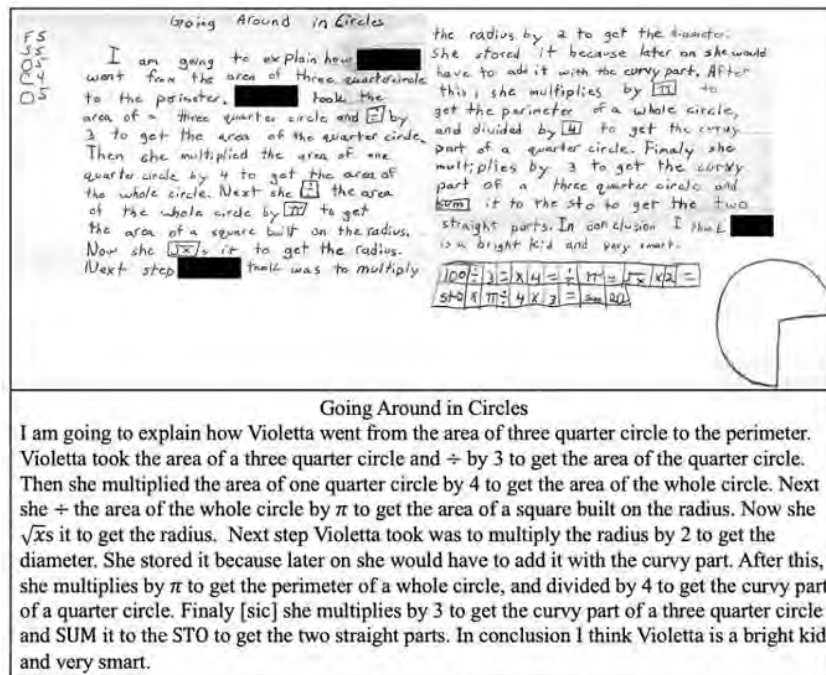 Going Around in Circles
F5
S5
O5
C4
O5
I am going to explain how
went from the area of three quarter circle
to the perimeter. took the
area of a three quarter circle and ÷ by
3 to get the area of the quarter circle.
Then she multiplied the area of one
quarter circle by 4 to get the area of
the whole circle. Next she ÷ the area
of the whole circle by π to get
the area of a square built on the radius.
Now she √x s it to get the radius.
Next step took was to multiply
the radius by 2 to get the diameter.
She stored it because later on she would
have to add it with the curvy part. After
this, she multiplies by π to
get the perimeter of a whole circle,
and divided by 4 to get the curvy
part of a quarter circle. Finaly she
multiplies by 3 to get the curvy
part of a three quarter circle and
sum it to the sto to get the two
straight parts. In conclusion I think
is a bright kid and very smart.
100 ÷ 3 = x 4 = ÷ π = √x x 2 =
sto x π ÷ 4 x 3 = sum
Going Around in Circles
I am going to explain how Violetta went from the area of three quarter circle to the perimeter.
Violetta took the area of a three quarter circle and ÷ by 3 to get the area of the quarter circle.
Then she multiplied the area of one quarter circle by 4 to get the area of the whole circle. Next
she ÷ the area of the whole circle by π to get the area of a square built on the radius. Now she
√xs it to get the radius. Next step Violetta took was to multiply the radius by 2 to get the
diameter. She stored it because later on she would have to add it with the curvy part. After this,
she multiplies by π to get the perimeter of a whole circle, and divided by 4 to get the curvy part
of a quarter circle. Finaly [sic] she multiplies by 3 to get the curvy part of a three quarter circle
and SUM it to the STO to get the two straight parts. In conclusion I think Violetta is a bright kid
and very smart.